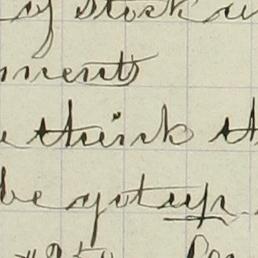 of stock w
ments
think th
be got up.